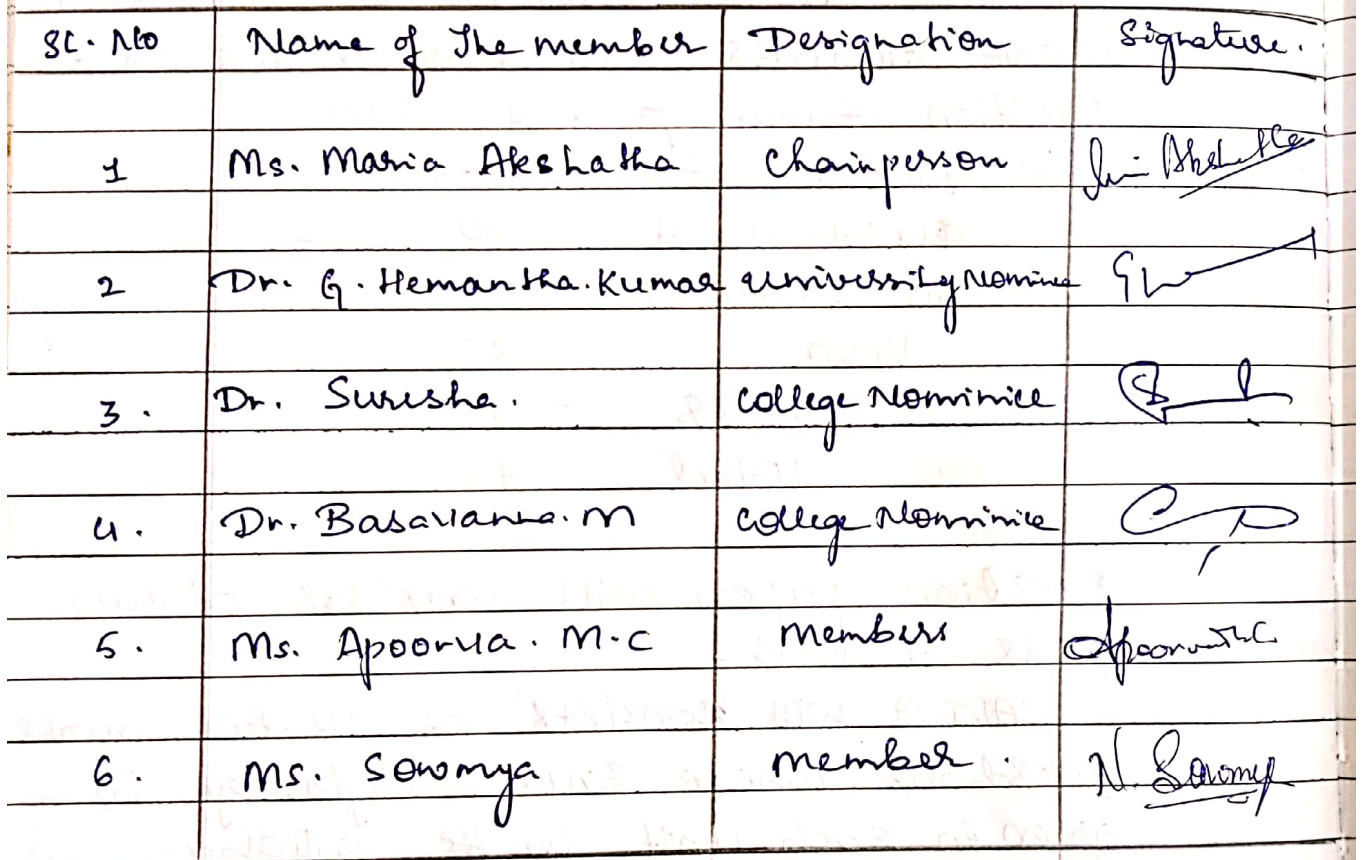 Sl. No Name of The member Designation Signature.
1 Ms. Maria Akshatha Chairperson Akshatha
2 Dr. G. Hemantha. Kumar University Nominee
3. Dr. Suresha. College Nominice
4. Dr. Basavanna. M College Nominice
5. Ms. Apoorva. M.C Members Apoorva M.C
6. Ms. Sowmya member. N. Sowmya